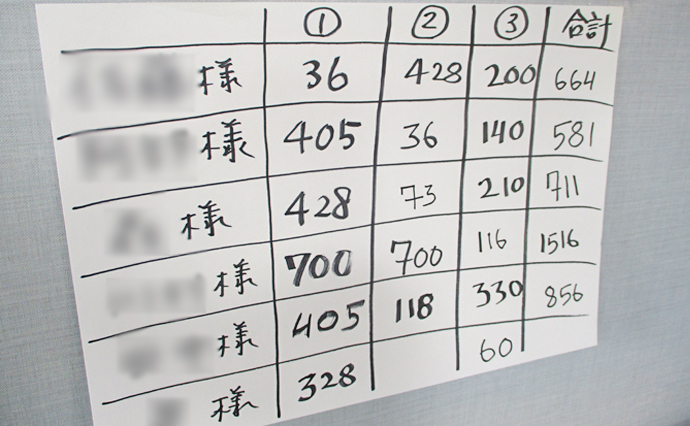 ① ② ③ 合計
様 36 428 200 664
様 405 36 140 581
様 428 73 210 711
様 700 700 116 1516
様 405 118 330 856
様 328 60